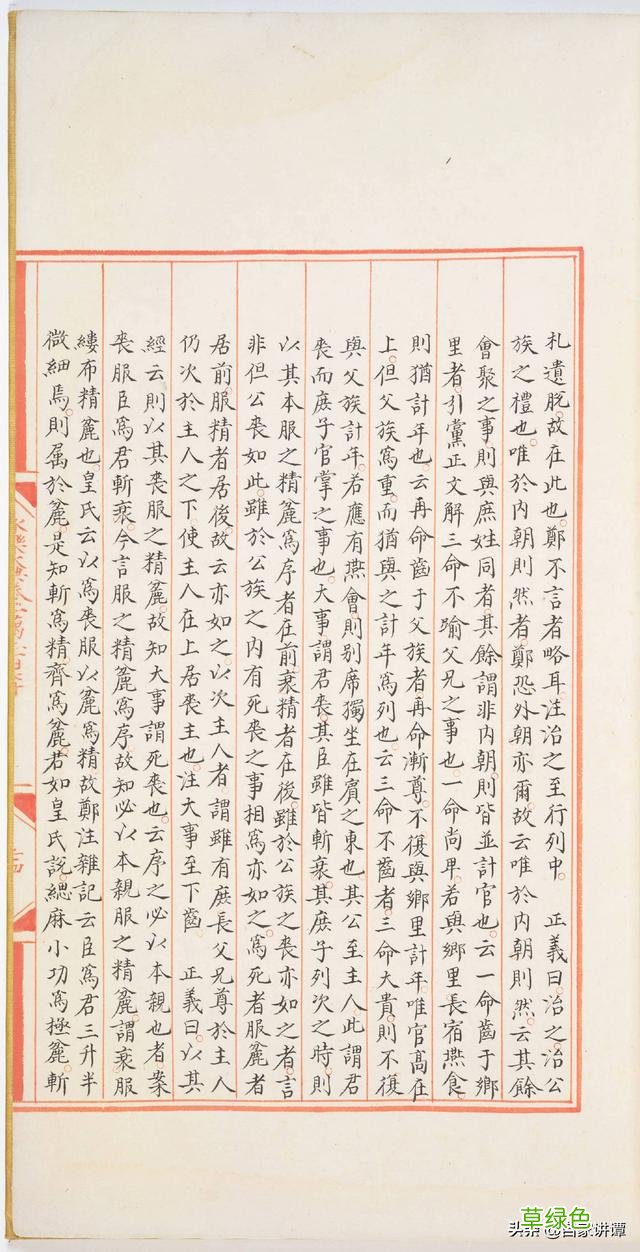 札遺脫故在此也鄭不言者略耳注治之至行列中　正義曰治之治公
族之禮也唯於內朝則然者鄭恐外朝亦爾故云唯於內朝則然云其餘
會聚之事則與庶姓同者其餘謂非內朝則皆並計官也云一命齒于鄉
里者引黨正文解三命不踰父兄之事也一命尚卑若與鄉里長宿燕食
則猶計年也云再命齒于父族者再命漸尊不復與鄉里計年唯官高在
上但父族為重而猶與之計年為列也云三命不齒者三命大貴則不復
與父族計年若應有燕會則別席獨坐在賓之東也其公至主人此謂君
喪而庶子官掌之事也大事謂君喪其臣雖皆斬衰其庶子列次之時則
以其本服之精麤為序者在前衰精者在後雖於公族之喪亦如之者言
非但公喪如此雖於公族之內有死喪之事相為亦如之為死者服麤者
居前服精者居後故云亦如之以次主人者謂雖有庶長父兄尊於主人
仍次於主人之下使主人在上居喪主也注大事至下齒　正義曰以其
經云則以其喪服之精麤故知大事謂死喪也云序之必以本親也者案
喪服臣為君斬衰今言服之精麤為序故知必以本親服之精麤謂衰服
縷布精麤也皇氏云以為喪服以麤為精故鄭注雜記云臣為君三升半
微細焉則屬於麤是知斬為精齊為麤若如皇氏說緦麻小功為極麤斬
永樂大典卷之萬
草绿色
头条 @百家讲谭